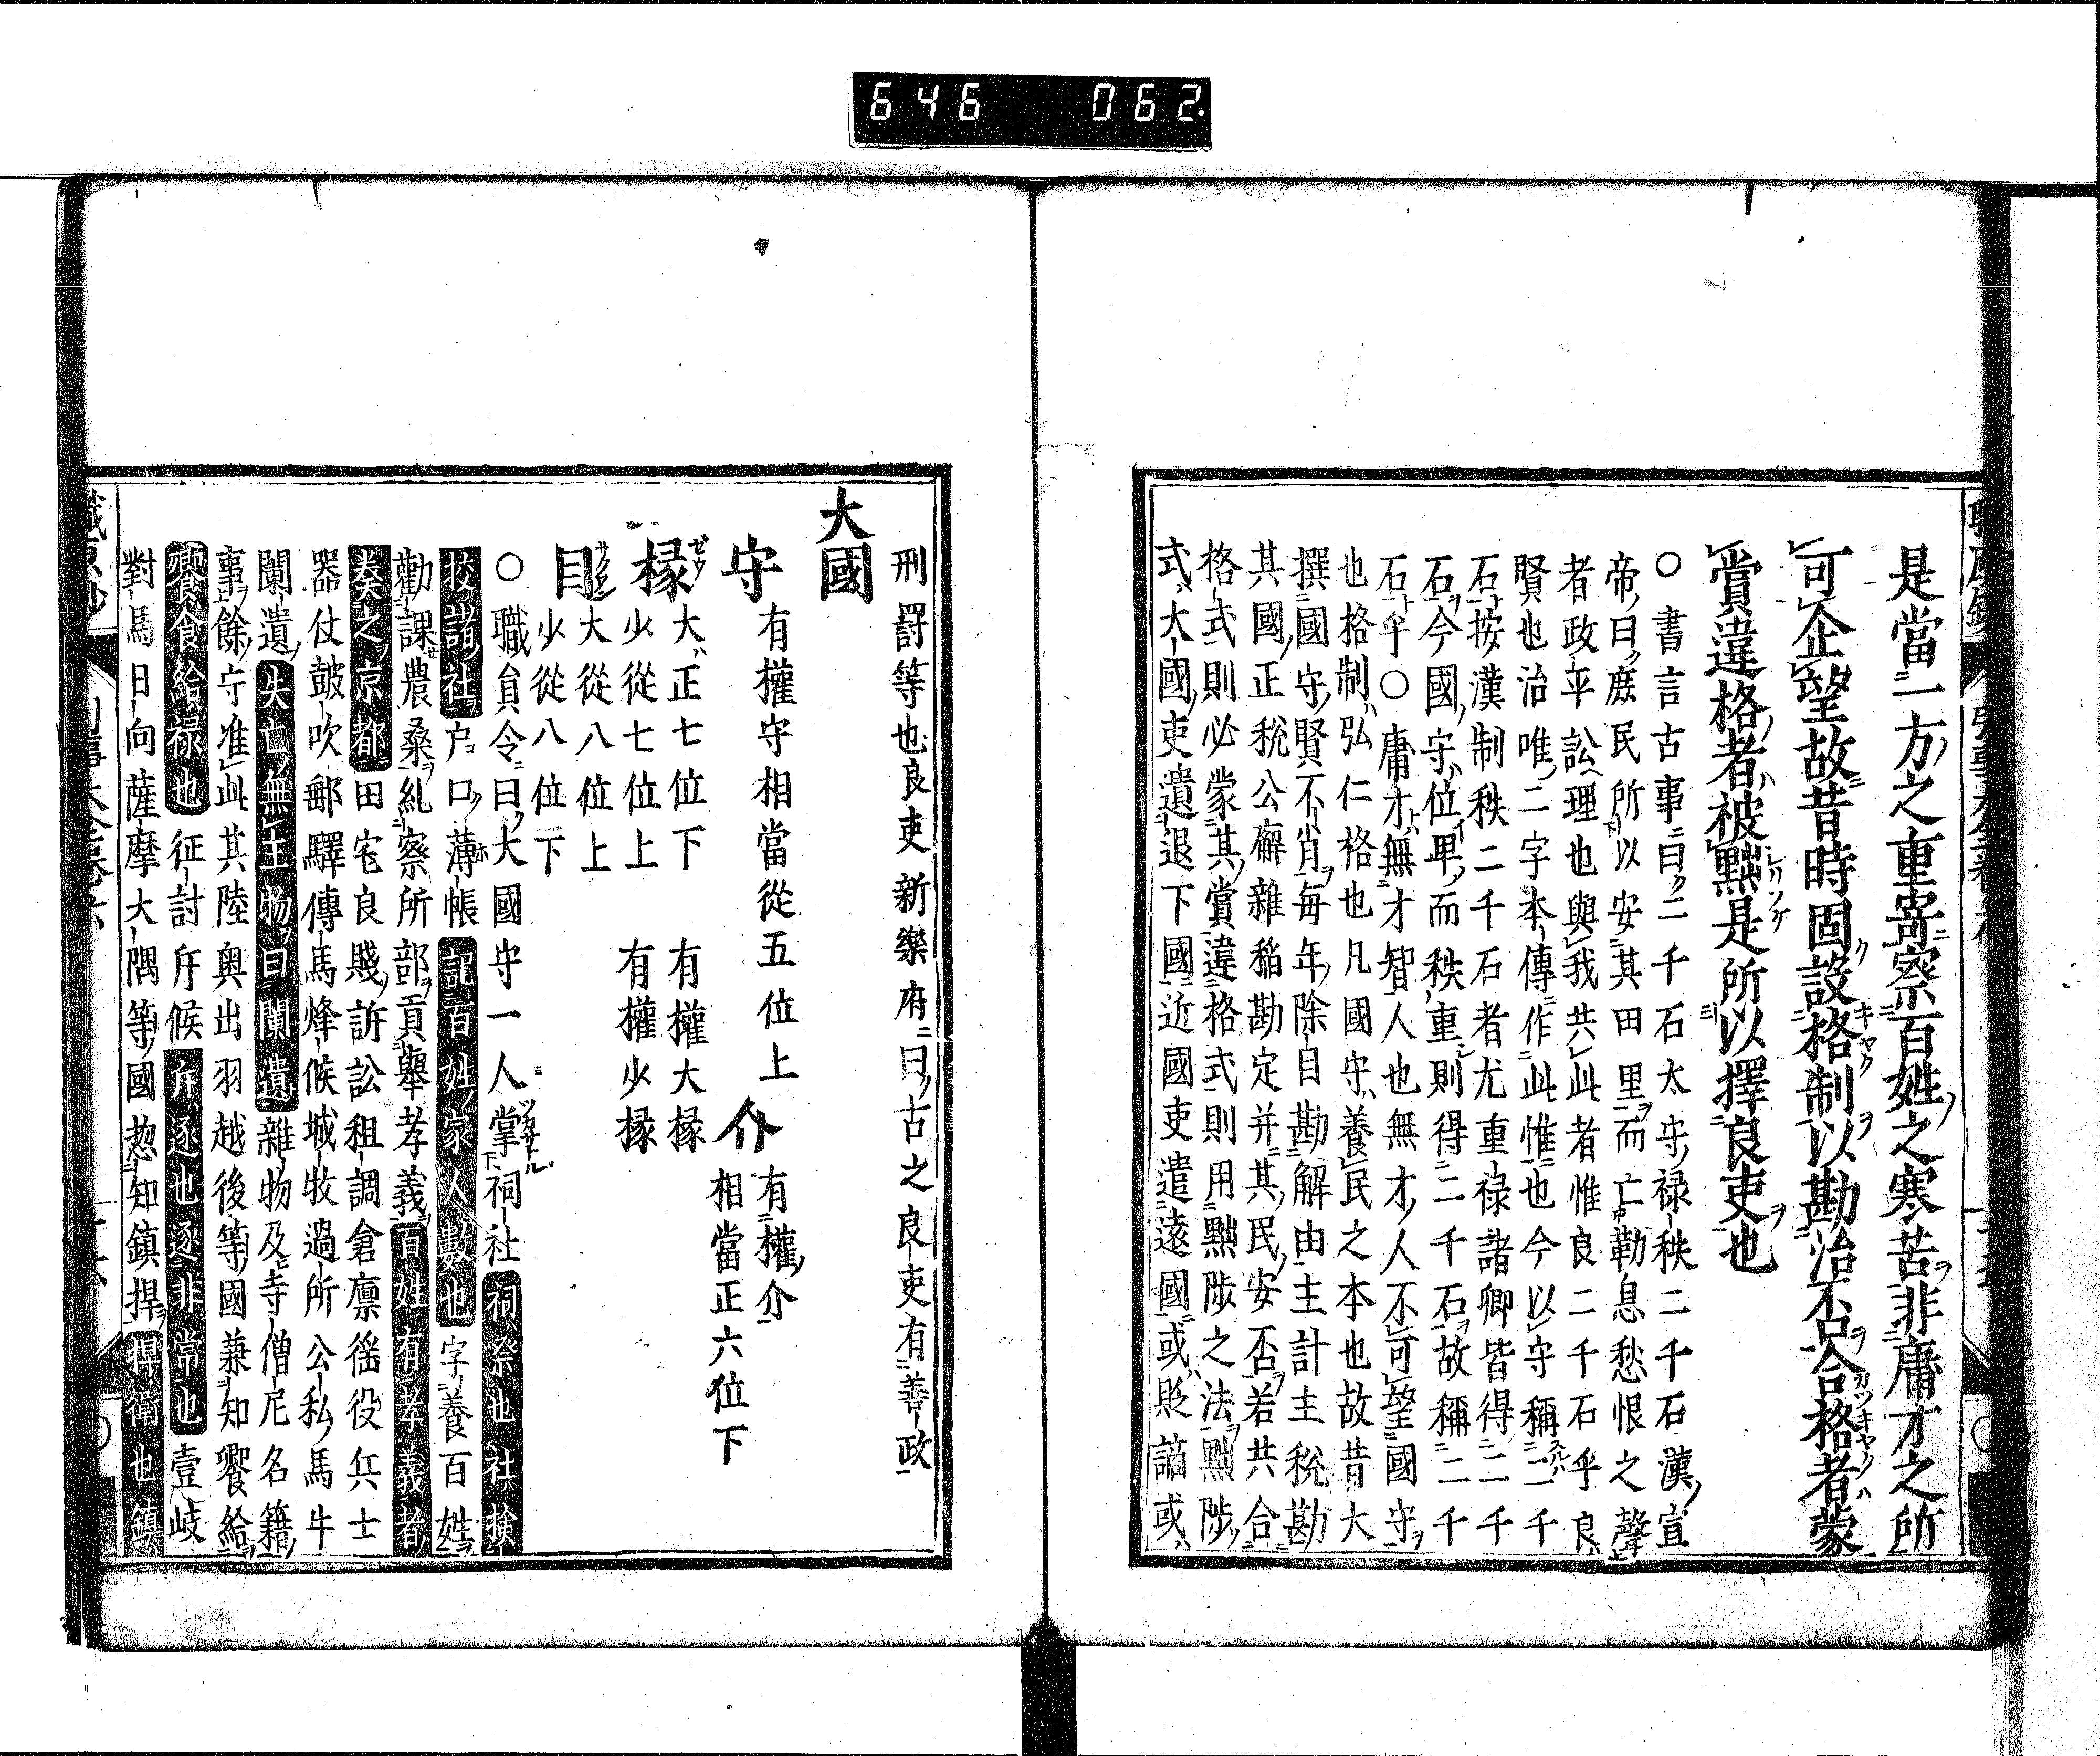 646 062
是當一方之重寄察百姓之寒苦非庸才之所
可企望故昔時固設格制以勘治不合格者蒙
賞違格者被黜是所以擇良吏也
○書言古事曰二千石太守禄秩二千石漢宣
帝曰庶民所以安其田里而亡勤息愁恨之聲
者政平訟理也與我共此者惟良二千石乎良
賢也治唯二字本傳作此惟也今以守稱二千
石按漢制秩二千石者尤重禄諸卿皆得二千
石今國守位卑而秩重則得二千石故稱二千
石乎○庸才無才智人也無才人不可望國守
也格制弘仁格也凡國守養民之本也故昔大
撰國守賢不肖毎年除自勘解由主計主税勘
其國正税公廨雜稲勘定并其民安否若共合
格式則必蒙其賞違格式則用黜陟之法黜陟
式大國吏遺退下國近國吏遣遠國或貶謫或
刑罸等也良吏新樂府曰古之良吏有善政
大國
守 有權守相當從五位上 介 有權介相當正六位下
掾 大正七位下 有權大掾
少從七位上 有權少掾
目 大從八位上
少從八位下
○職員令曰大國守一人掌祠社祠祭也社検
挍諸社戸口薄帳記百姓家人數也字養百姓
勸課農桑糺察所部貢舉孝義百姓有孝義者
奏之京都田宅良賤訴訟租調倉廪徭役兵士
器仗皷吹郵驛傳馬烽候城牧過所公私馬牛
闌遺失亡無主物曰闌遺雜物及寺僧尼名籍
事餘守准此其陸奥出羽越後等國兼知饗給
饗食給禄也征討斥候斥逐也逐非常也壹岐
對馬日向薩摩大隅等國惣知鎮捍捍衛也鎮